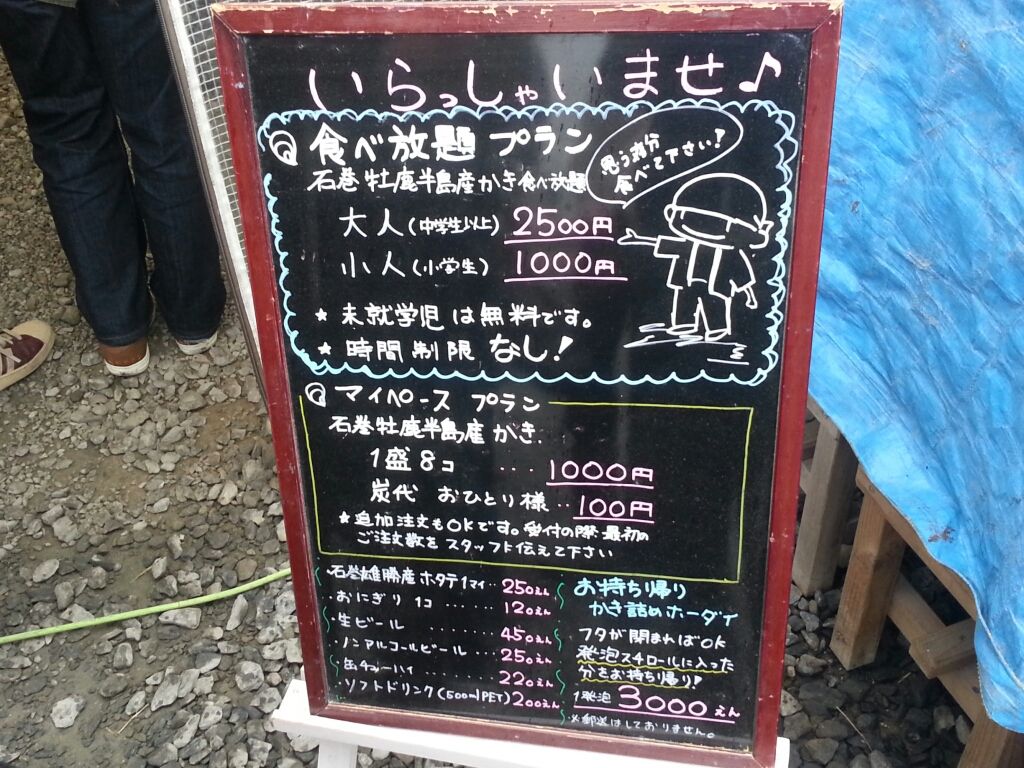 いらっしゃいませ♪
食べ放題 プラン
石巻牡鹿半島産かき食べ放題
思う存分
食べて下さい!
大人(中学生以上) 2500円
小人(小学生) 1000円
★ 未就学児は無料です。
★ 時間制限 なし!
マイペース プラン
石巻牡鹿半島産かき、
1盛8コ ... 1000円
炭代 おひとり様 .. 100円
★追加注文もOKです。受付の際、最初の
ご注文数をスタッフに伝えて下さい
・石巻雄勝産ホタテ1マイ.. 250えん
・おにぎり 1コ ...... 120えん
・生ビール ........ 450えん
・ノンアルコールビール .... 250えん
・缶チューハイ ...... 220えん
・ソフトドリンク(500mlPET) 200えん
お持ち帰り
かき詰めホーダイ
フタが閉まればOK
発泡スチロールに入った
分をお持ち帰り!
1発泡 3000えん
※郵送はしておりません。